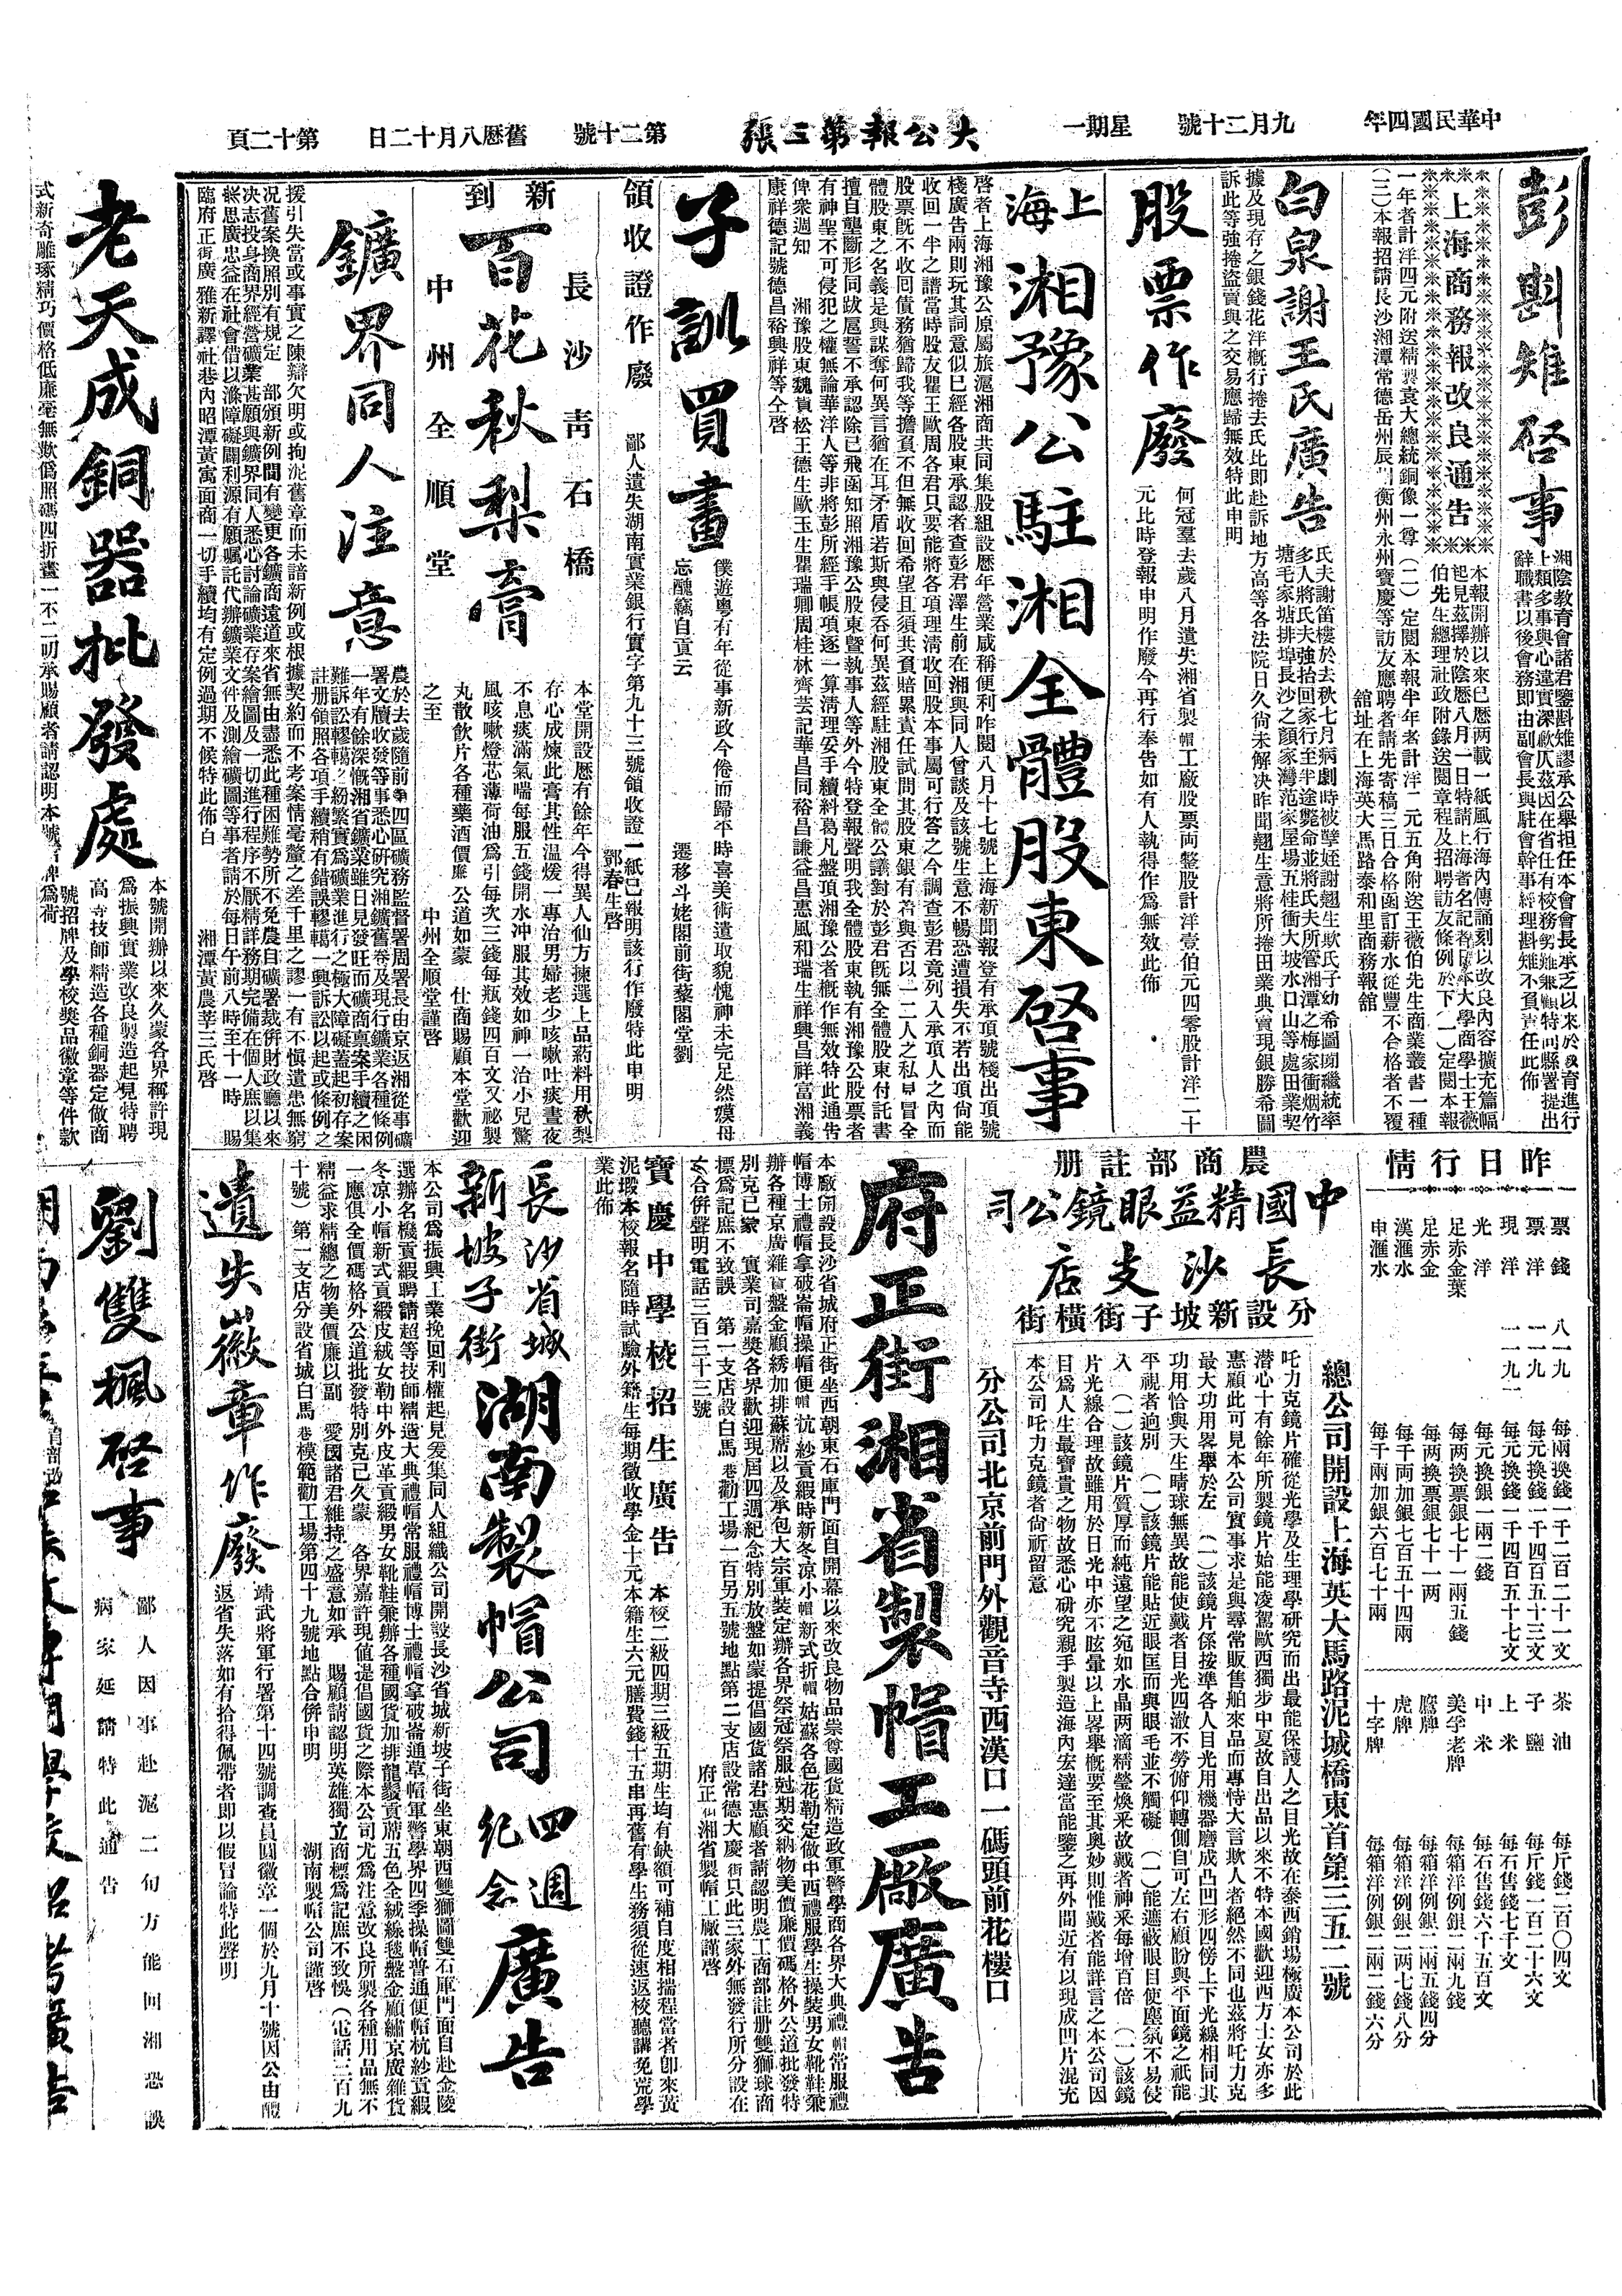 中華民國四年
九月二十號
星期一
大公報第三張
第二十號
舊曆八月十二日
第十二頁
彭斟雉啓事
湘陰教育會諸君鑒斟雉謬承公舉担任本會會長承乏以來於教育進行
上類多事與心違實深歉仄茲因在省任有校務勢難兼顧特向縣署提出
辭職書以後會務即由副會長與駐會幹事經理斟雉不負責任此佈
上海商務報改良通告
本報開辦以來已歷两載一紙風行海內傳誦刻以改良內容擴充篇幅
起見茲擇於陰歷八月一日特請上海著名記者日本大學商學士王薇
伯先生總理社政附錄送閱章程及招聘訪友條例於下(一)定閱本報
一年者計洋四元附送精製袁大總統銅像一尊(二)定閱本報半年者計洋二元五角附送王薇伯先生商業叢書一種
(三)本報招請長沙湘潭常德岳州辰州衡州永州寶慶等訪友應聘者請先寄稿三日合格函訂薪水從豐不合格者不覆
舘址在上海英大馬路泰和里商務報舘
白泉謝王氏廣告
氏夫謝笛樓於去秋七月病劇時被孽姪謝翹生欺氏子幼希圖罔繼統率
多人將氏夫強抬回家行至半途斃命並將氏夫所管湘潭之梅家衝烟竹
塘毛家塘排埠長沙之顏家灣范家屋場五桂衝大坡水口山等處田業契
據及現存之銀錢花洋概行捲去氏比即赴訴地方高等各法院日久尙未解决昨聞翹生意將所捲田業典賣現銀勝希圖
訴此等強捲盜賣與之交易應歸無效特此申明
股票作廢
何冠羣去歲八月遺失湘省製帽工廠股票両整股計洋壹伯元四零股計洋二十
元比時登報申明作廢今再行奉告如有人執得作爲無效此佈
上海湘豫公駐湘全體股東啓事
啓者上海湘豫公原屬旅滬湘商共同集股組設歷年營業咸稱便利昨閱八月十七號上海新聞報登有承頂號棧出頂號
棧廣告兩則玩其詞意似已經各股東承認者查彭君澤生前在湘與同人曾談及該號生意不暢恐遭損失不若出頂尙能
收回一半之譜當時股友瞿王歐周各君只要能將各項理淸收回股本事屬可行答之今調查彭君竟列入承頂人之內而
股票既不收囘債務猶歸我等擔負不但無收回希望且須共負賠累責任試問其股東銀有若與否以一二人之私見冒全
體股東之名義是與謀奪何異言猶在耳矛盾若斯與侵吞何異茲經駐湘股東全體公議對於彭君旣無全體股東付託書
擅自壟斷形同跋扈誓不承認除已飛函知照湘豫公股東曁執事人等外今特登報聲明我全體股東執有湘豫公股票者
有神聖不可侵犯之權無論華洋人等非將彭所經手帳項逐一算清理妥手續料葛凡盤頂湘豫公者槪作無效特此通告
俾衆週知　湘豫股東魏貰松王德生歐玉生瞿瑞卿周桂林齊芸記華昌同裕昌謙益昌惠風和瑞生祥興昌祥富湘義
康祥德記號德昌裕興祥等仝啓
子訓買畫
僕遊粵有年從事新政今倦而歸平時喜美術遣取貌愧神未完足然嫫母
忘醜竊自賣云　遷移斗姥閣前街藜閣堂劉
領收證作廢
鄙人遺失湖南實業銀行實字第九十三號領收證一紙已報明該行作廢特此申明
鄧春生啓
新到
百花秋梨膏
長沙靑石橋
中州全順堂
本堂開設歷有餘年今得異人仙方揀選上品葯料用秋梨
存心成煉此膏其性温煖一專治男婦老少咳嗽吐痰晝夜
不息痰滿氣喘每服五錢開水冲服其效如神一治小兒驚
風咳嗽燈芯薄荷油爲引每次三錢每瓶錢四百文又祕製
丸散飲片各種藥酒價廉公道如蒙　仕商賜顧本堂歡迎
之至　中州全順堂謹啓
鑛界同人注意
農於去歲隨前第四區礦務監督署周署長由京返湘從事礦
署文牘收發等事悉心研究湘鑛舊卷及現行鑛業各種條例
一年有餘深慨湘省鑛業雖日見發旺而礦商禀案手續之困
難訴訟轇轕之紛繁實爲礦業進行之極大障礙蓋起初存案
註册領照各項手續稍有錯誤轇轕一興訴訟以起或條例之
援引失當或事實之陳辯欠明或拘泥舊章而未諳新例或根據契約而不考案情毫釐之差千里之謬一有不愼遺患無窮
况舊案換照別有規定　部頒新例間有變更各鑛商遠道來省無由盡悉此種困難勢所不免農自礦署裁併財政廳以來
決志投身商界經營礦業甚願與鑛界同人悉心討論礦業存案繪圖及一切進行程序不厭精詳務期完備在個人庶以集
衆思廣忠益在社會借以滌障礙闢利源有願囑託代辦鑛業文件及測繪礦圖等事者請於每日午前八時至十一時　賜
臨府正街廣雅新譯社巷內昭潭黃寓面商一切手續均有定例過期不候特此佈白
湘潭黃農莘三氏啓
老天成銅器批發處
本號開辦以來久蒙各界稱許現
爲振興實業改良製造起見特聘
高等技師精造各種銅器定做商
號招牌及學校奬品徽章等件款
式新奇雕琢精巧價格低廉毫無欺僞照碼四折畫一不二叨承賜顧者請認明本號招牌爲荷
昨日行情
票錢　八一九　每兩換錢一千二百二十一文
票洋　一一九　每元換錢一千四百五十三文
現洋　一一九一　每元換錢一千四百五十七文
光洋　每元換銀一兩二錢
足赤金葉　每两換票銀七十一兩五錢
足赤金　每两換票銀七十一两
漢滙水　每千両加銀七百五十四兩
申滙水　每千兩加銀六百七十兩
茶油　每斤錢二百〇四文
子鹽　每斤錢一百二十六文
上米　每石售錢七千文
中米　每石售錢六千五百文
美孚老牌　每箱洋例銀二兩九錢
鷹牌　每箱洋例銀二兩五錢四分
虎牌　每箱洋例銀二两七錢八分
十字牌　每箱洋例銀二兩二錢六分
農商部註册
中國精益眼鏡公司
長沙支店
分設新坡子街橫街
總公司開設上海英大馬路泥城橋東首第三五二號
吒力克鏡片確從光學及生理學研究而出最能保護人之目光故在泰西銷塲極廣本公司於此
潛心十有餘年所製鏡片始能凌駕歐西獨步中夏故自出品以來不特本國歡迎四方士女亦多
惠顧此可見本公司實事求是與尋常販售舶來品而專恃大言欺人者絕然不同也茲將吒力克
最大功用畧舉於左　(一)該鏡片係按準各人目光用機器磨成凸凹形四傍上下光線相同其
功用恰與天生晴球無異故能使戴者目光四澈不勞俯仰轉側自可左右顧盼與平面鏡之祇能
平視者逈別　(一)該鏡片能貼近眼匡而與眼毛並不觸礙　(一)能遮蔽眼目使塵氛不易侵
入　(一)該鏡片質厚而純遠望之宛如水晶两滴精瑩煥釆故戴者神釆每增百倍　(一)該鏡
片光線合理故雖用於日光中亦不眩暈以上畧舉概要至其奥妙則惟戴者能詳言之本公司因
目爲人生最寶貴之物故悉心研究親手製造海內宏達當能鑒之再外間近有以現成凹片混充
本公司吒力克鏡者尙祈留意
分公司北京前門外觀音寺西漢口一碼頭前花樓口
府正街湘省製帽工廠廣告
本廠開設長沙省城府正街坐西朝東石庫門面自開幕以來改良物品崇尊國貨精造政軍警學商各界大典禮帽常服禮
帽博士禮帽拿破崙帽操帽便帽杭紗貢緞時新冬凉小帽新式折帽姑蘇各色花勒定做中西禮服學生操裝男女靴鞋兼
辦各種京廣雜貨盤金顧綉加排蘇席以及承包大宗軍裝定辦各界祭冠祭服冠期交納物美價廉價碼格外公道批發特
別克己蒙　實業司嘉奬各界歡迎現屆四週紀念特別放盤如蒙提倡國貨諸君惠顧者請認明農工商部註册雙獅球商
標爲記庶不致誤　第一支店設白馬巷勸工場一百另五號地點第二支店設常德大慶街只此三家外無發行所分設在
合併聲明電話三百二十三號　府正街湘省製帽工廠謹啓
寶慶中學校招生廣告
本校二級四期三級五期生均有缺額可補自度相揣程當者卽來黃
泥塅本校報名隨時試驗外籍生每期徵收學金十元本籍生六元膳費錢十五串再舊有學生務須從速返校聽講免荒學
業此佈
長沙省城新坡子街
湖南製帽公司
四週紀念
廣告
本公司爲振興工業挽回利權起見爰集同人組織公司開設長沙省城新坡子街坐東朝西雙獅圖雙石庫門面自赴金陵
選辦名機貢緞聘請超等技師精造大典禮帽常服禮帽博士禮帽拿破崙通草帽軍警學界四季操帽普通便帽杭紗貢緞
冬凉小帽新式貢緞皮絨女勒中外皮革貢緞男女靴鞋兼辦各種國貨加排龍鬚貢席五色全絨絲毯盤金顧繡京廣雜貨
一應俱全價碼格外公道批發特別克己久蒙　各界嘉許現值提倡國貨之際本公司尤爲注意改良所製各種用品無不
精益求精總之物美價廉以副　愛國諸君維持之盛意如承　賜顧請認明英雄獨立商標爲記庶不致悞(電話二百九
十號)第一支店分設省城白馬巷模範勸工場第四十九號地點合併申明　湖南製帽公司謹啓
遺失徽章作廢
靖武將軍行署第十四號調查員圓徽章一個於九月十號因公由醴
返省失落如有拾得佩帶者即以假冒論特此聲明
劉雙楓啓事
鄙人因事赴滬二旬方能回湘恐誤
病家延請特此通告